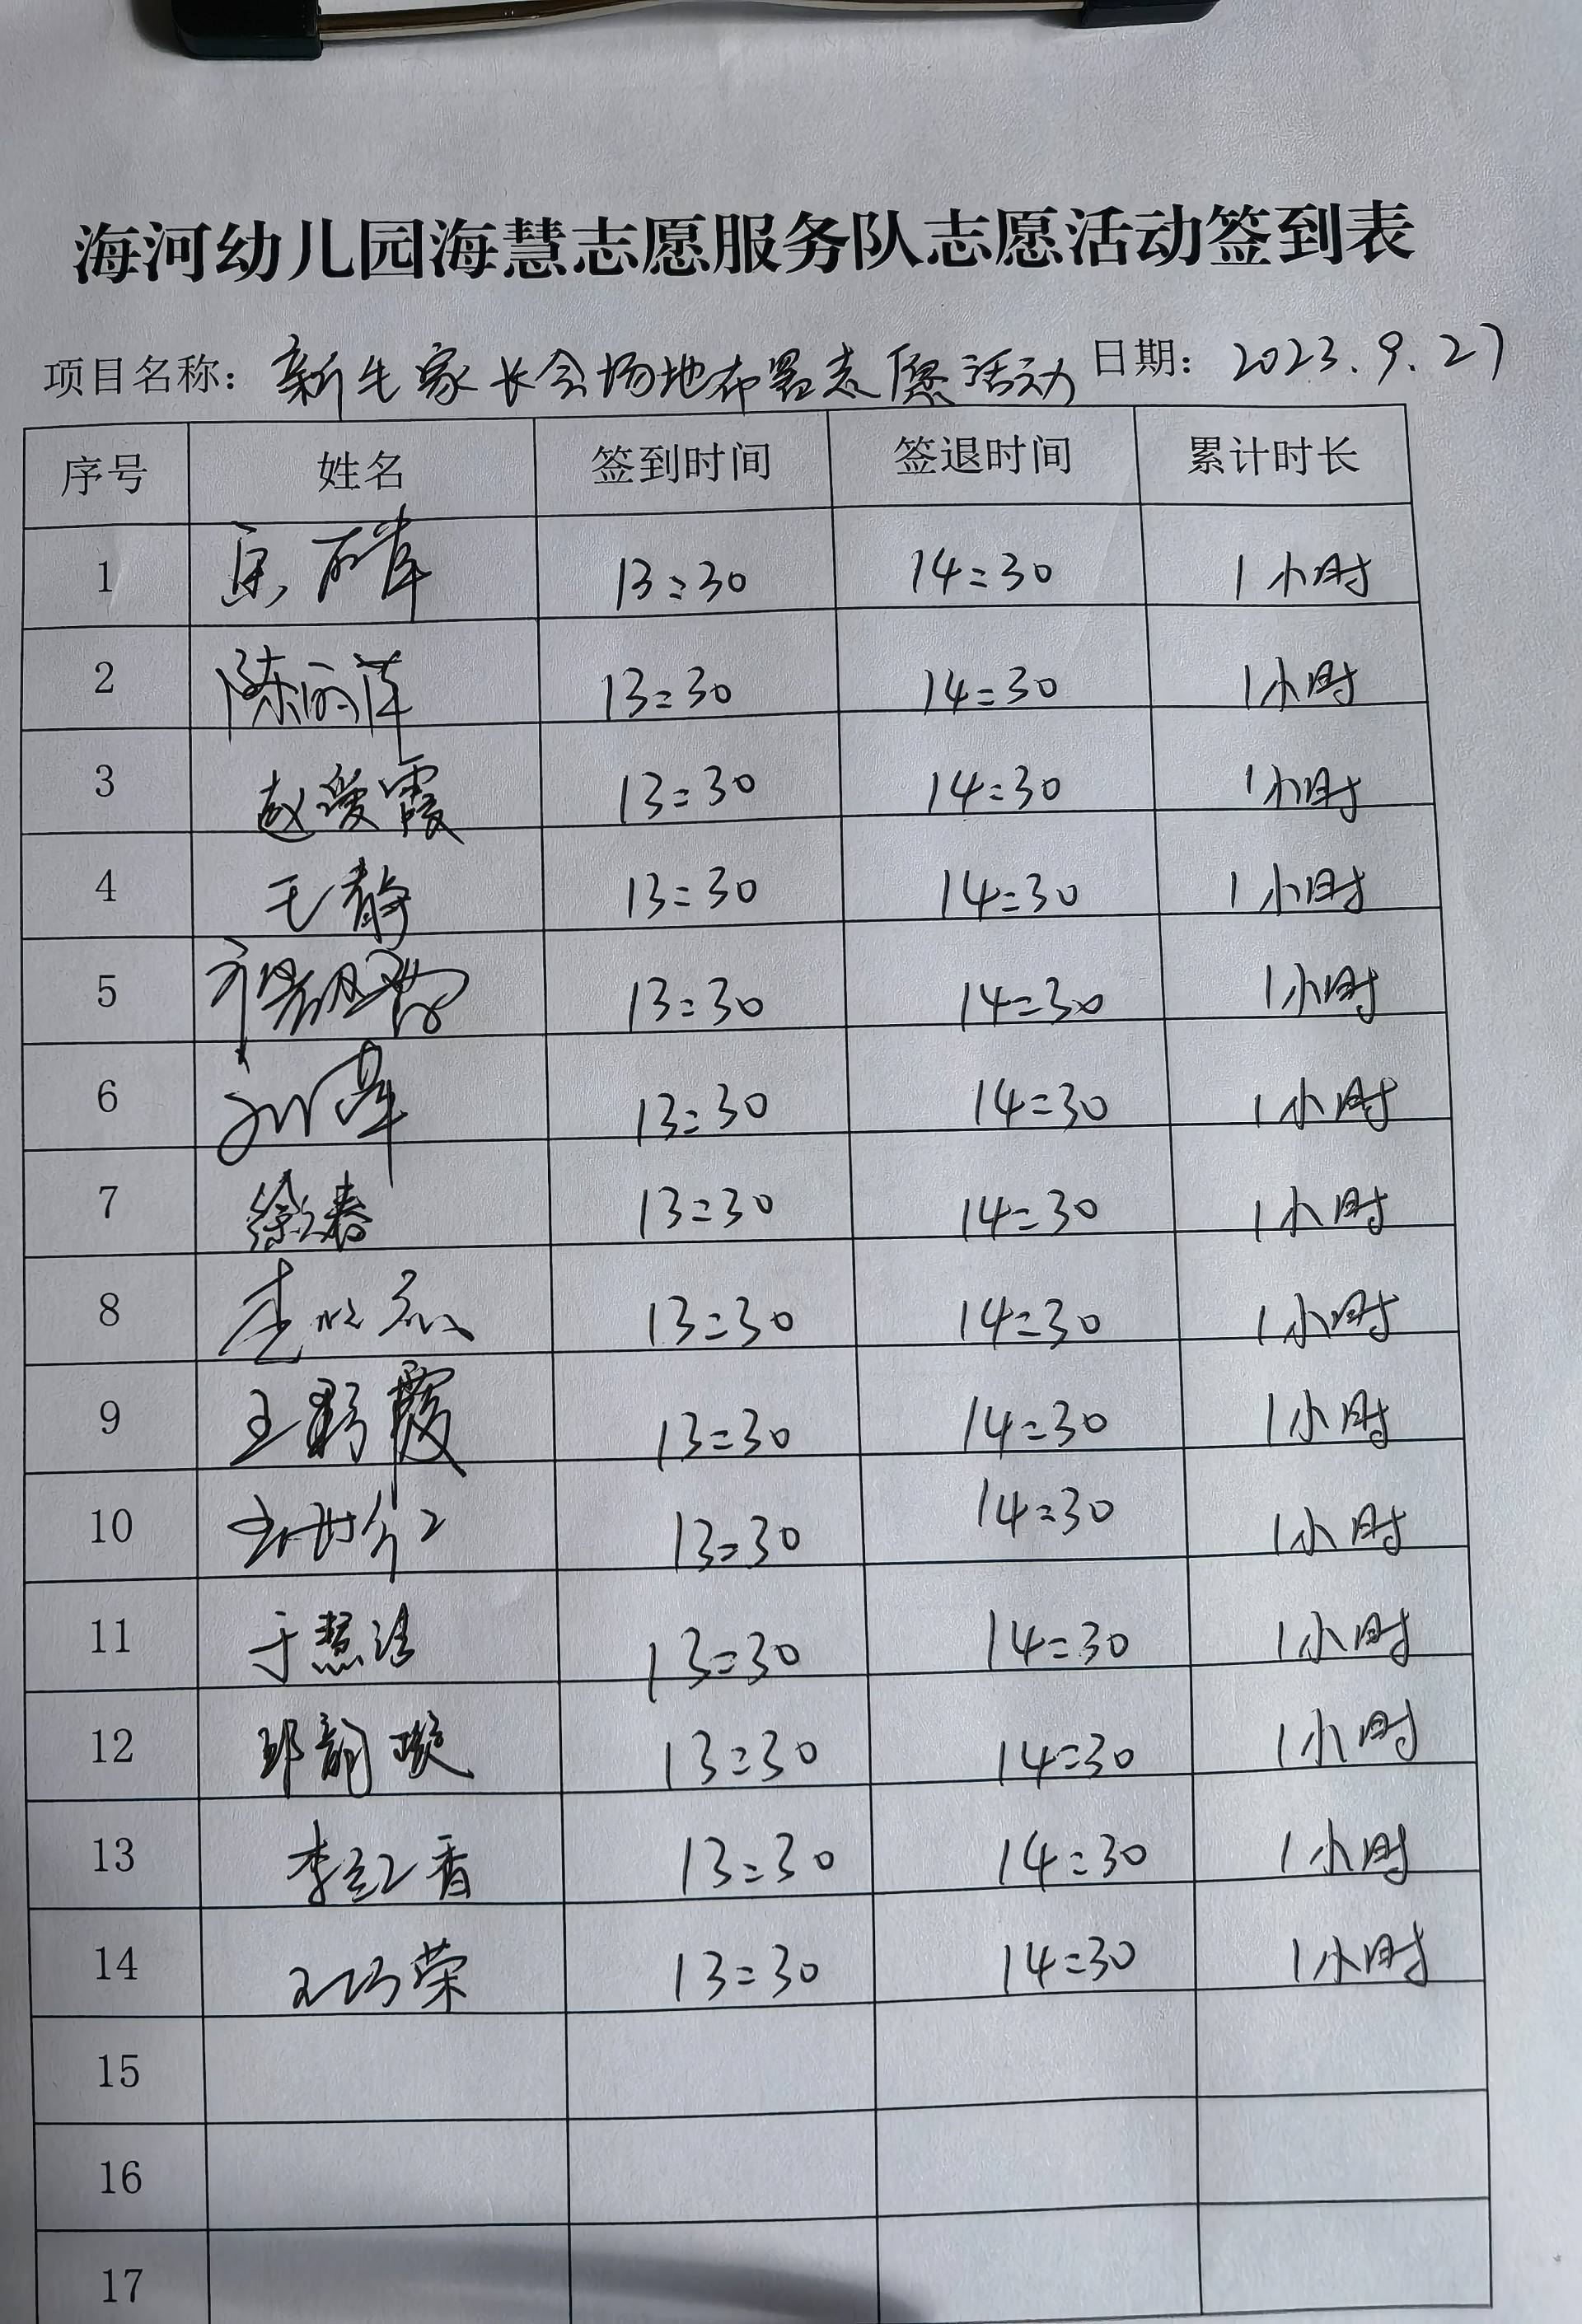 海河幼儿园海慧志愿服务队志愿活动签到表
项目名称：新生家长会场地布置志愿活动 日期：2023.9.27
序号 姓名 签到时间 签退时间 累计时长
1 13:30 14:30 1小时
2 陈丽萍 13:30 14:30 1小时
3 赵爱霞 13:30 14:30 1小时
4 王静 13:30 14:30 1小时
5 13:30 14:30 1小时
6 13:30 14:30 1小时
7 13:30 14:30 1小时
8 13:30 14:30 1小时
9 王彩霞 13:30 14:30 1小时
10 13:30 14:30 1小时
11 于慧洁 13:30 14:30 1小时
12 邱韵璇 13:30 14:30 1小时
13 李红香 13:30 14:30 1小时
14 王巧荣 13:30 14:30 1小时
15
16
17